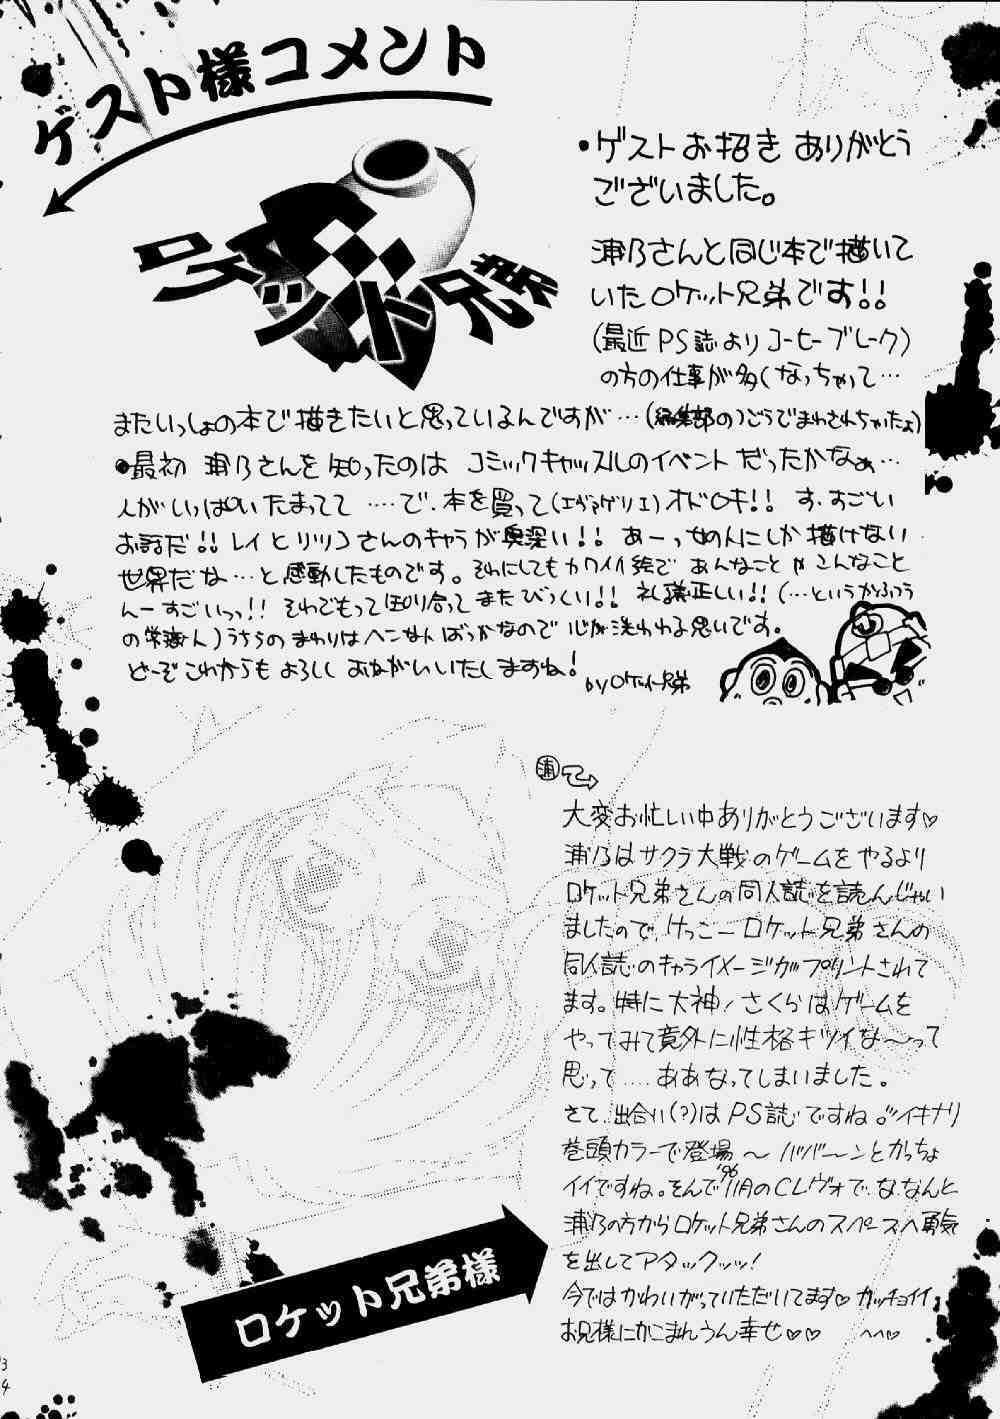 ゲスト様コメント
ロケット兄弟
・ゲストお招き ありがとう
ございました。
浦乃さんと同じ本で描いて
いたロケット兄弟です!!
(最近PS誌よりコーヒーブレーク)
の方の仕事が多くなっちゃって…
またいっしょの本で描きたいと思っているんですが…(編集部のつごうでまわされちゃいたよ)
●最初 浦乃さんを知ったのは コミックキャッスルのイベントだったかなぁ…
人がいっぱいいたまってて ……で、本を買って(エヴァゲリエ)オドロキ!! す、すごい
お話だ!! レイとリツコさんのキャラが奥深い!! あーっ女の人にしか描けない
世界だな…と感動したものです。それにしてもカワイイ絵で あんなことやこんなこと
んーすごいっっ!! それでもって知り合ってまたびっくり!! 礼儀正しい!! (…というかふつう
の常識人)うちらのまわりはヘンな人ばっかなので心が洗われる思いです。
どーぞこれからもよろしくおねがいいたしますね!
byロケット兄弟
浦
大変お忙しい中ありがとうございます♡
浦乃はサクラ大戦のゲームをやるより
ロケット兄弟さんの同人誌を読んじゃい
ましたので、けっこーロケット兄弟さんの
同人誌のキャライメージがプリントされて
ます。特に大神!さくらはゲームを
やってみて意外に性格キツイな〜って
思って……ああなってしまいました。
さて、出合い(?)はPS誌ですね。イキナリ
巻頭カラーで登場〜ババーンとかっちょ
イイですね。そんで'96 11月のCレヴォで、な、なんと
浦乃の方からロケット兄弟さんのスペースへ勇気
を出してアタックッッ!
今ではかわいがっていただいてます♡カッチョイイ
お兄様にかこまれうん幸せ♡♡ ^^♡
ロケット兄弟様
34